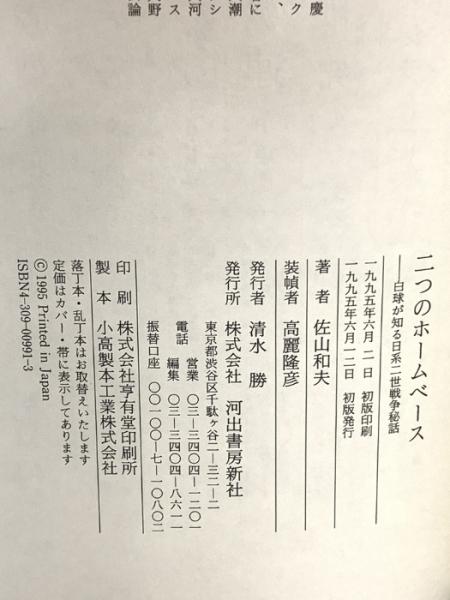 二つのホームベース
──白球が知る日系二世戦争秘話
一九九五年六月 二日 初版印刷
一九九五年六月一二日 初版発行
著 者 佐山和夫
装幀者 高麗隆彦
発行者 清水 勝
発行所 株式会社 河出書房新社
東京都渋谷区千駄ヶ谷二-三二-二
電話 営業 〇三-三四〇四-一二〇一
編集 〇三-三四〇四-八六一一
振替口座 〇〇一〇〇-七-一〇八〇二
印 刷 株式会社亨有堂印刷所
製 本 小高製本工業株式会社
落丁本・乱丁本はお取替えいたします
定価はカバー・帯に表示してあります
©1995 Printed in Japan
ISBN4-309-00991-3
慶
ク
、
に
潮
シ
河
ス
野
論